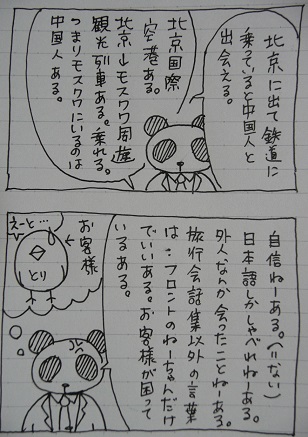 北京に出て鉄道に
乗っていると中国人と
出会える。
北京国際
空港ある。
北京⇔モスクワ周遊
観光列車ある。乗れる。
つまりモスクワにいるのは
中国人ある。
自信ねーある。(※ない)
日本語しかしゃべれねーある。
外人なんか会ったことねーある。
旅行会話集以外の言葉
は…フロントのねーちゃんだけ
でいいある。お客様が困って
いるある。
お客様
えーと…
とり